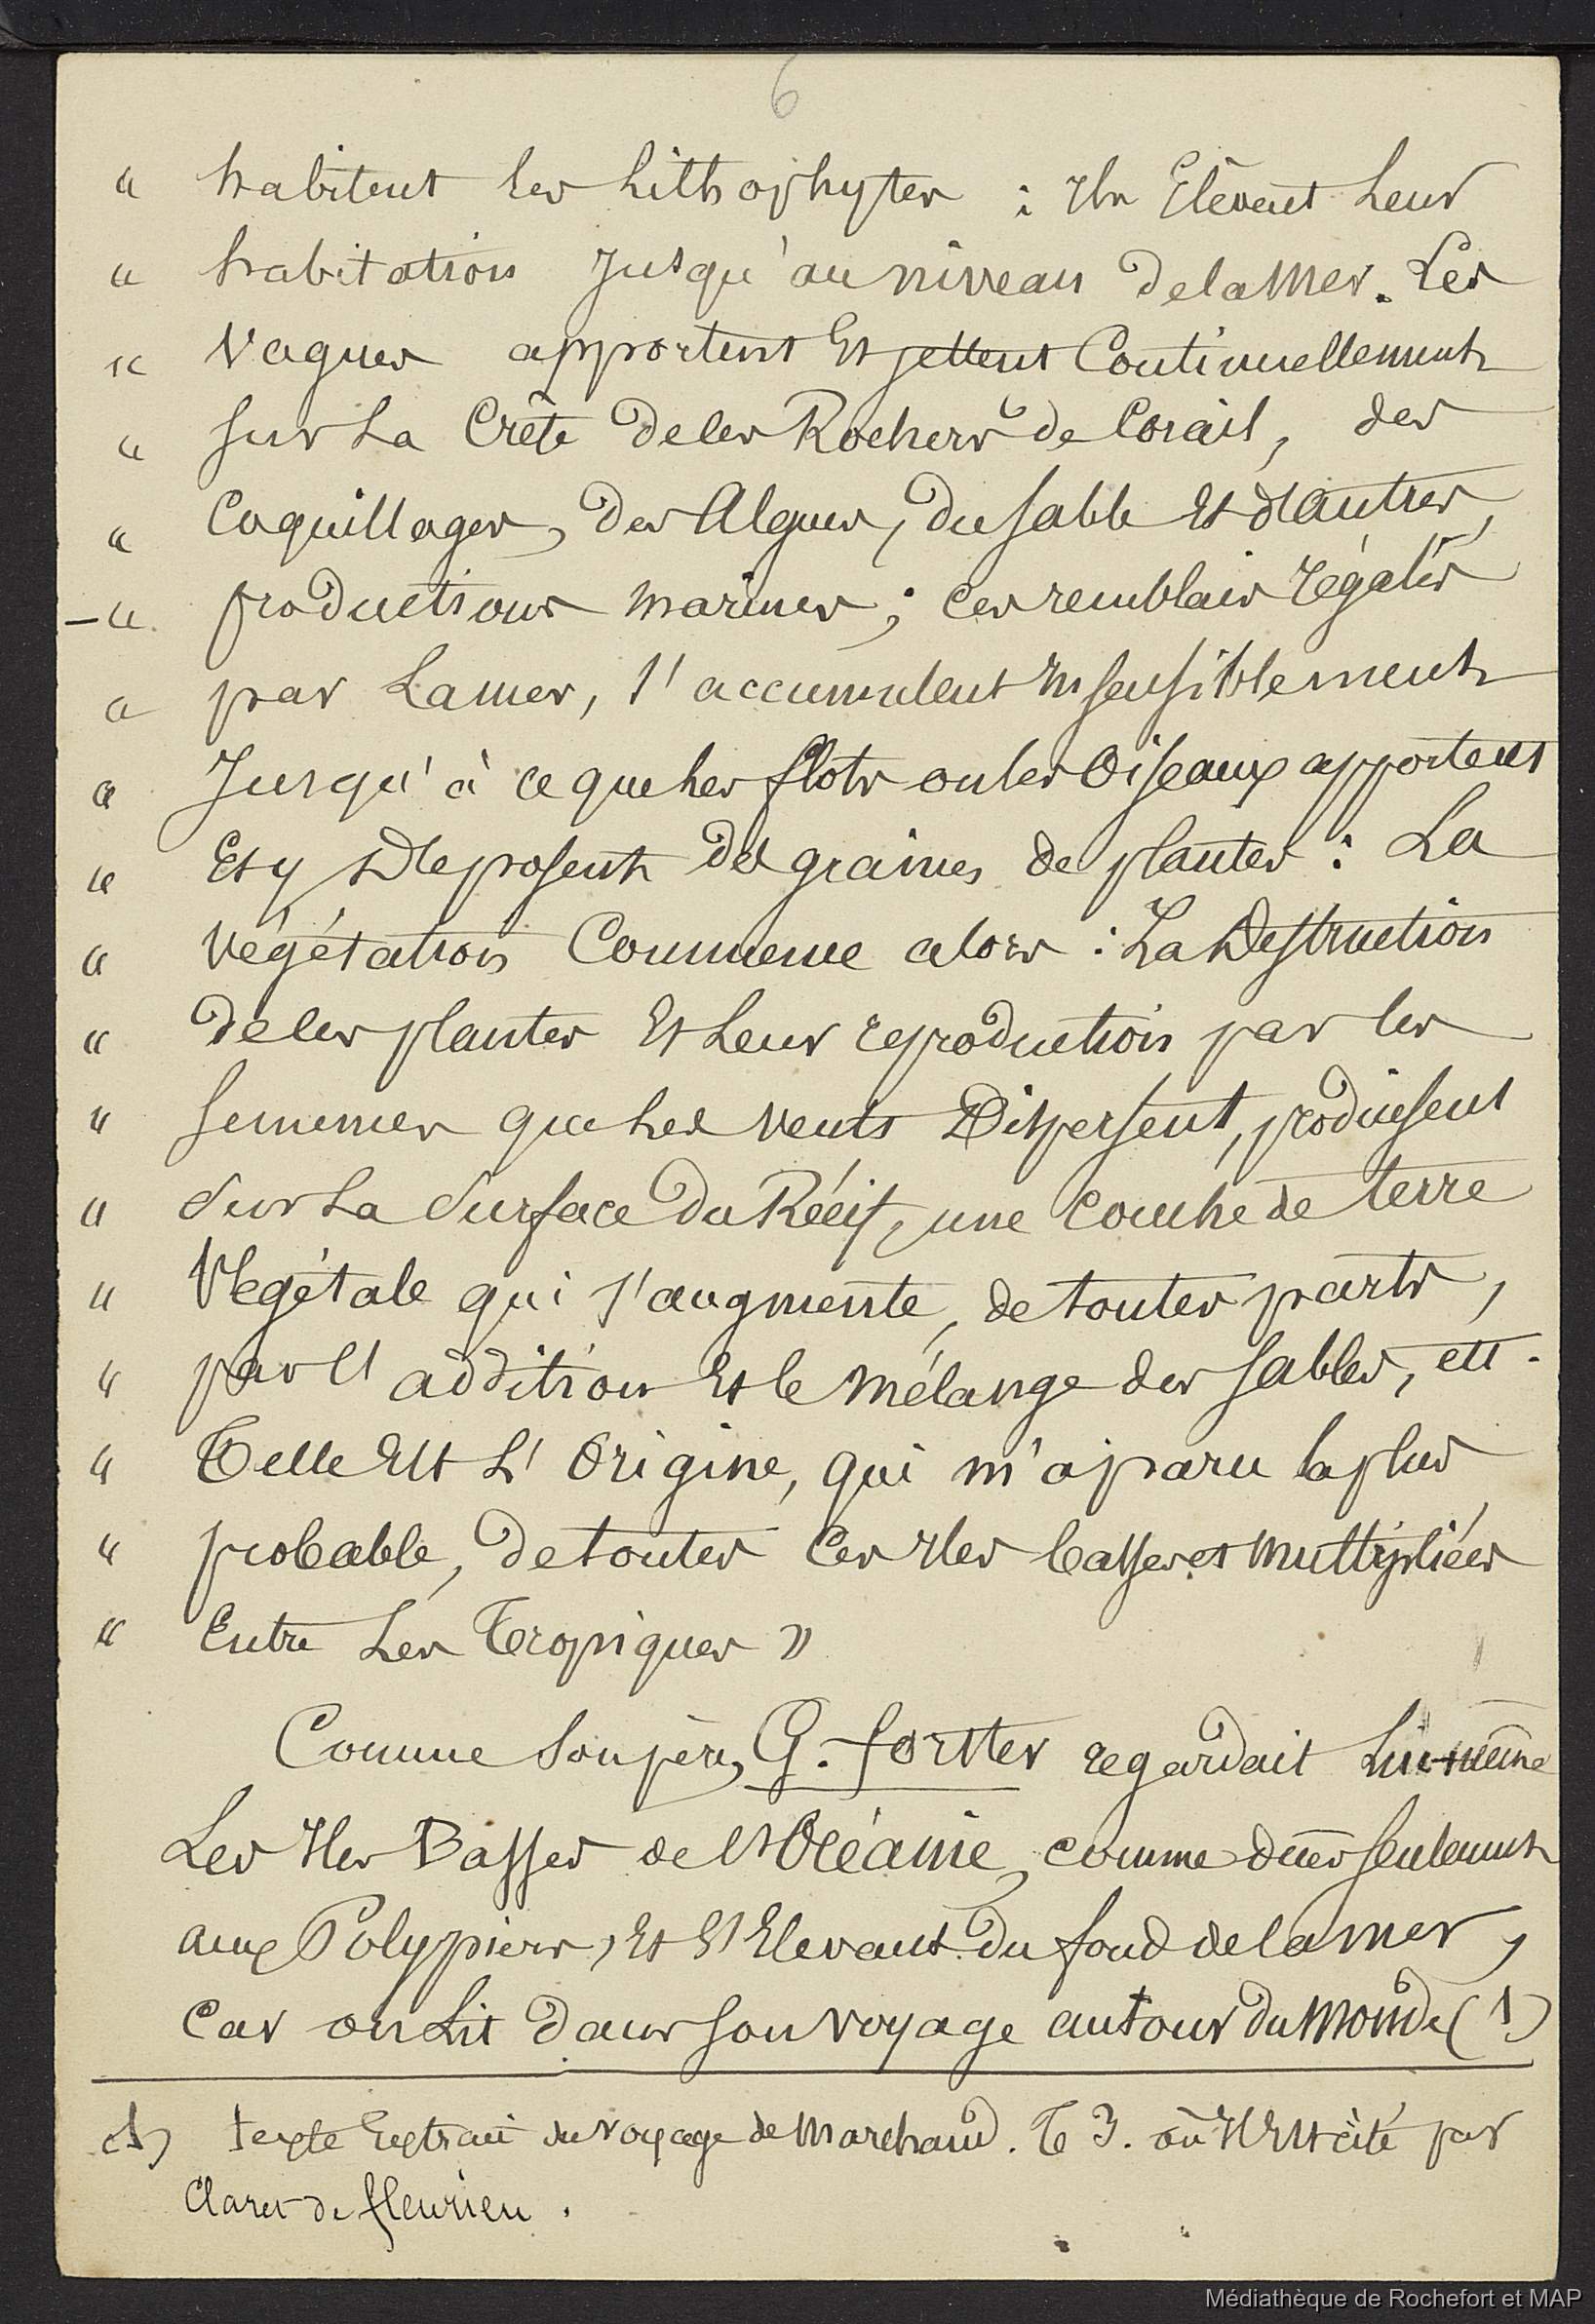 6
" habitent les Lithophytes : Ils Elèvent leur
" habitation Jusqu'au niveau de la Mer. Les
" Vagues apportent Et jettent Continuellement
" sur La Crête de les Rochers de Corail, des
" Coquillages, des Algues, du sable Et d'autres,
-" productions marines ; ces remblais régalés
" par La mer, s'accumulent Insensiblement
" Jusqu'à ce que les flots ou les Oiseaux apportent
" Et y Deposent des graines de plantes : La
" Végétation Commence alors : La Destruction
" de les plantes Et Leur reproduction par les
" semences que les vents Dispersent, produisent
" sur La surface du Récif, une couche de terre
" Végétale qui s'augmente, de toutes parts,
" par l'addition Et le mélange des sables, etc.
" Telle Est L'Origine, qui m'a paru la plus
" probable, de toutes Ces Iles basses et multipliées
" Entre Les Tropiques »
Comme son père, G. forster regardait Lui-même
Les Iles Basses de l'Océanie, comme dues seulement
aux Polypiers, Et S'Elevant du fond de la mer,
Car on Lit dans son voyage autour du Monde (1)
(1) texte Extrait du voyage de Marchand. T 3. où Il Est cité par
Claret de fleurieu.
Médiathèque de Rochefort et MAP